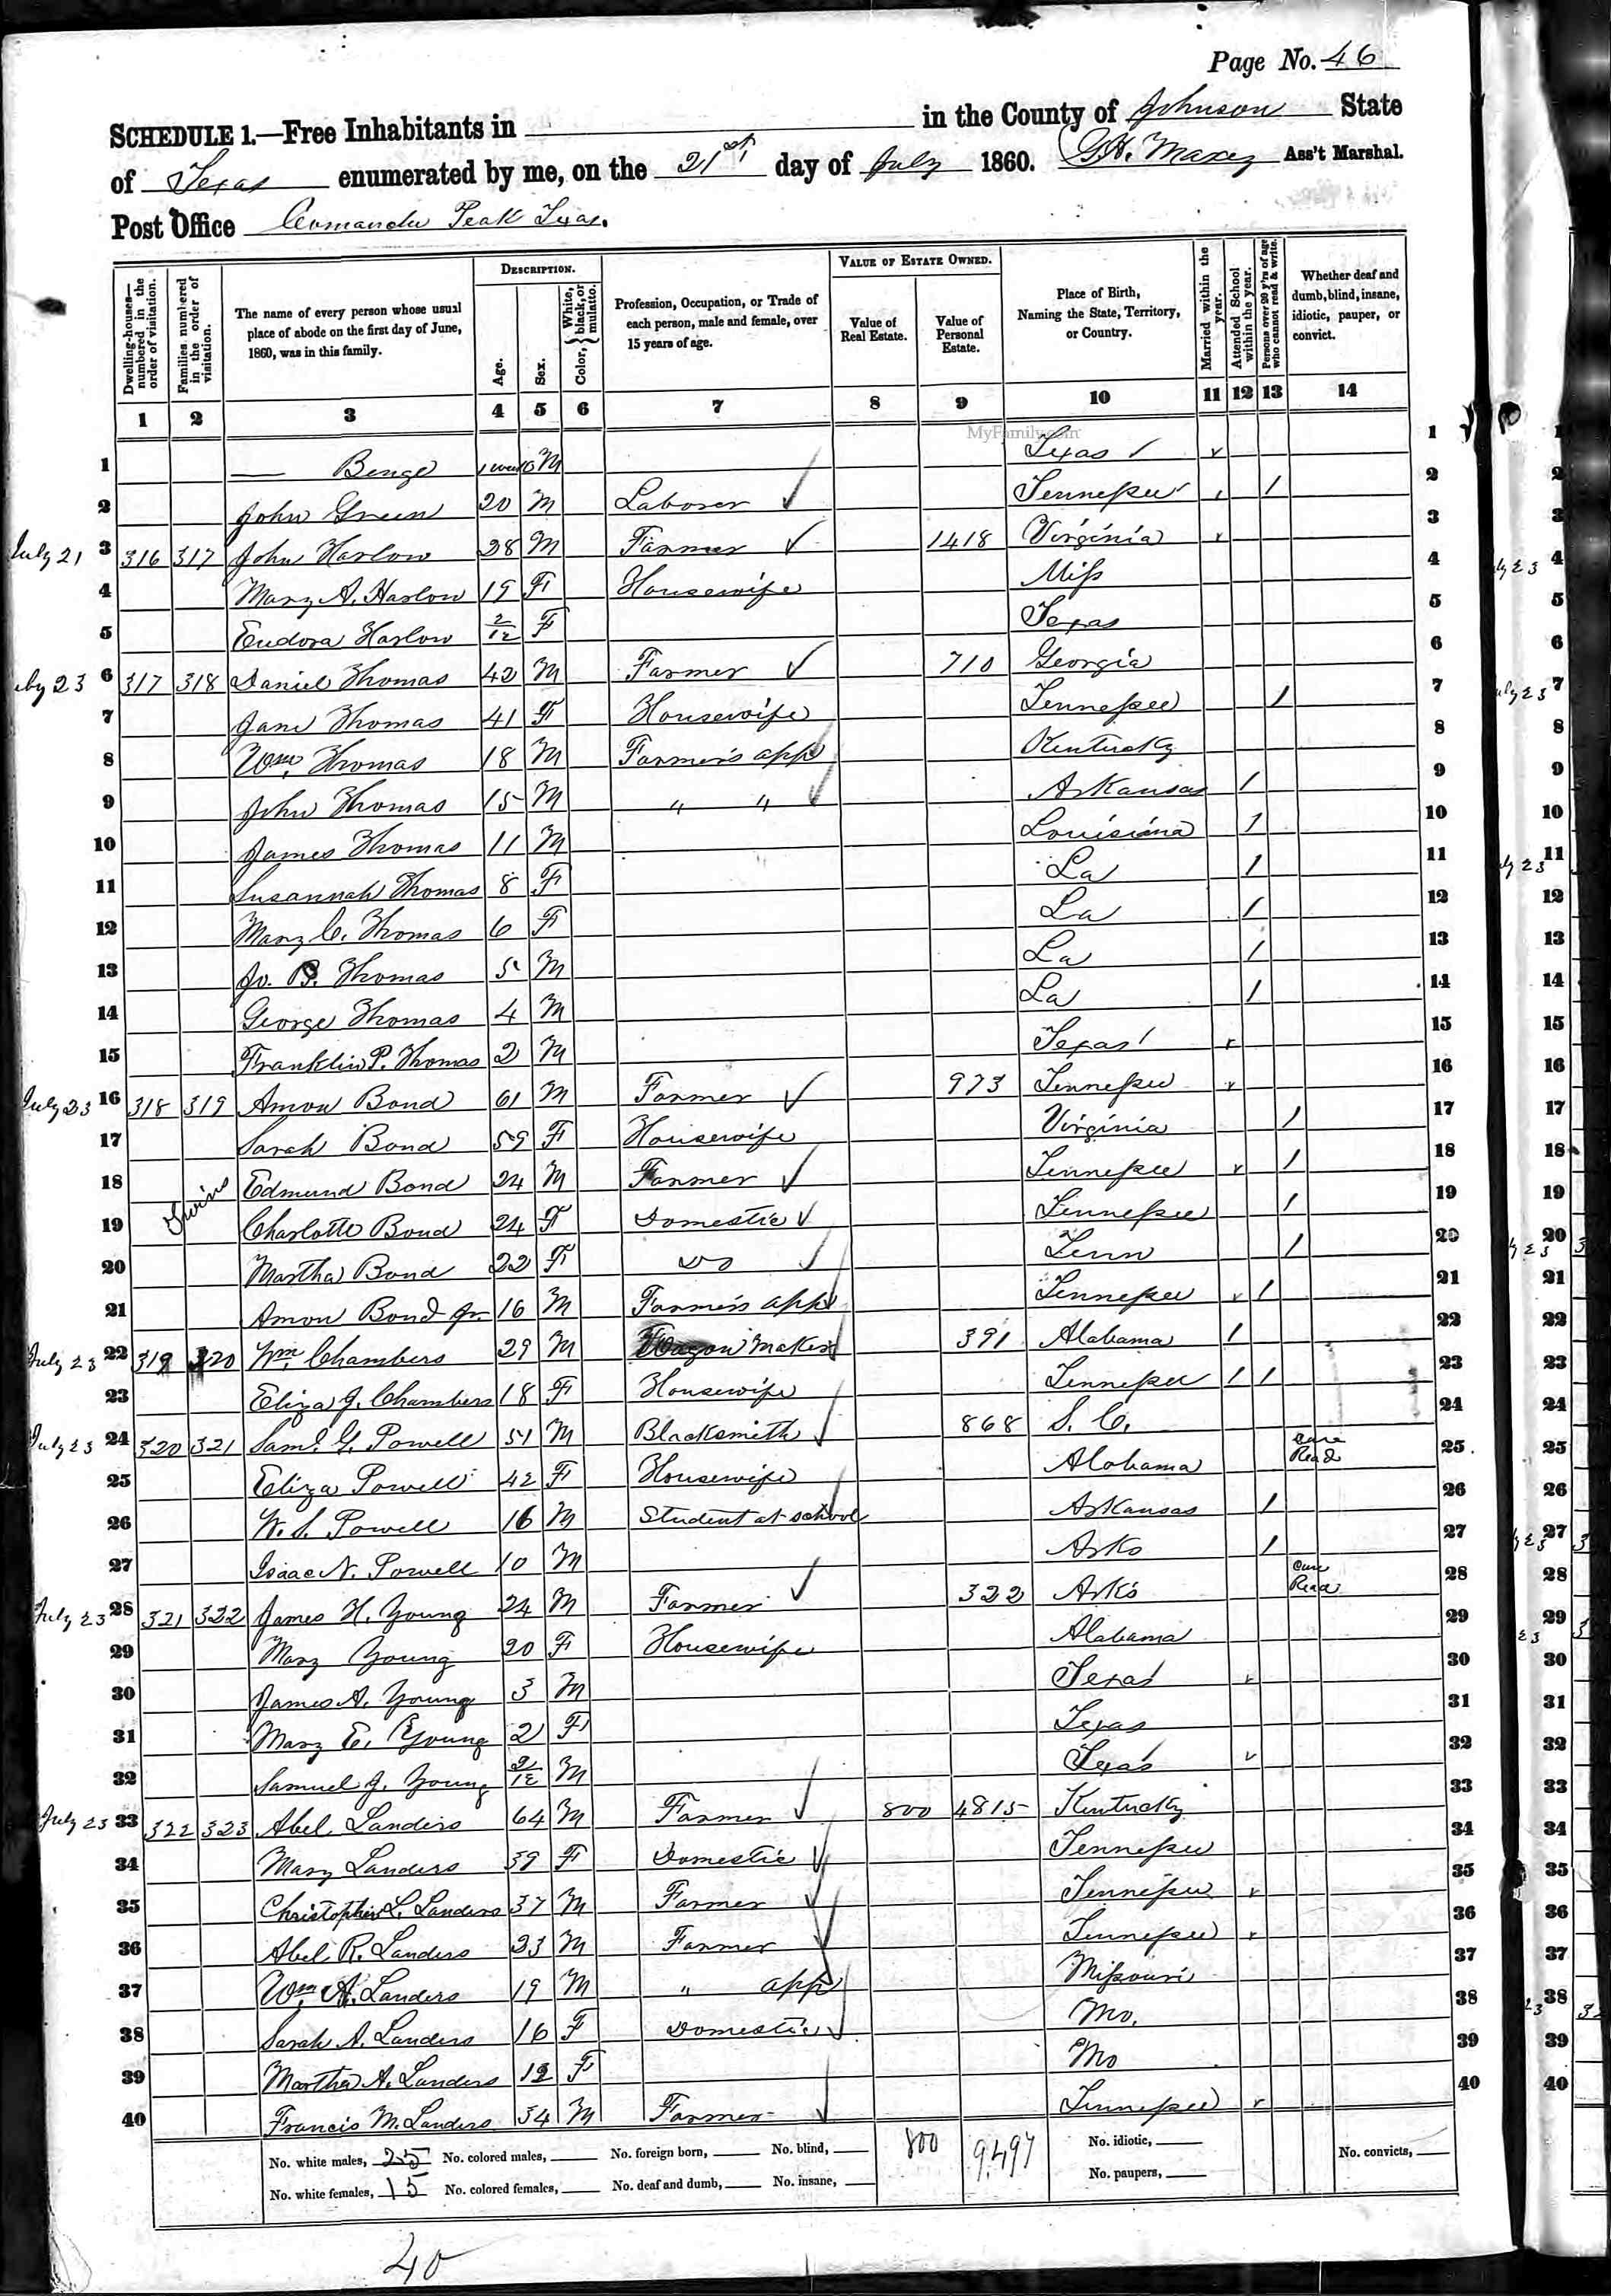 Page No. 46
SCHEDULE 1.—Free Inhabitants in ______ in the County of Johnson State
of Texas enumerated by me, on the 21st day of July 1860. G.H. Maxey Ass't Marshal.
Post Office Comanche Peak Texas.
Dwelling-houses—numbered in the order of visitation.
Families numbered in the order of visitation.
The name of every person whose usual place of abode on the first day of June, 1860, was in this family.
DESCRIPTION.
Age.
Sex.
Color, { White, black, or mulatto.
Profession, Occupation, or Trade of each person, male and female, over 15 years of age.
VALUE OF ESTATE OWNED.
Value of Real Estate.
Value of Personal Estate.
Place of Birth, Naming the State, Territory, or Country.
Married within the year.
Attended School within the year.
Persons over 20 y'rs of age who cannot read & write.
Whether deaf and dumb, blind, insane, idiotic, pauper, or convict.
1 2 3 4 5 6 7 8 9 10 11 12 13 14
MyFamily.com
1 — Benge M Texas 1
2 John Green 20 M Laborer Tennessee 1 2
July 21 3 316 317 John Harlow 28 M Farmer 1418 Virginia 3
4 Mary A. Harlow 19 F Housewife Miss 4
5 Eudora Harlow 2/12 F Texas 5
July 23 6 317 318 Daniel Thomas 42 M Farmer 710 Georgia 6
7 Jane Thomas 41 F Housewife Tennessee 1 7
8 Wm. Thomas 18 M Farmer's app Kentucky 8
9 John Thomas 15 M " " Arkansas 1 9
10 James Thomas 11 M Louisiana 1 10
11 Susannah Thomas 8 F La 1 11
12 Mary C. Thomas 6 F La 1 12
13 Jo. B. Thomas 5 M La 1 13
14 George Thomas 4 M La 1 14
15 Franklin P. Thomas 2 M Texas 15
July 23 16 318 319 Amon Bond 61 M Farmer 973 Tennessee 16
17 Sarah Bond 59 F Housewife Virginia 1 17
18 Twins Edmund Bond 24 M Farmer Tennessee 1 18
19 Charlotte Bond 24 F Domestic Tennessee 1 19
20 Martha Bond 22 F do Tenn 1 20
21 Amon Bond Jr. 16 M Farmers app Tennessee 1 21
July 23 22 319 320 Wm. Chambers 29 M Wagon Maker 391 Alabama 1 22
23 Eliza J. Chambers 18 F Housewife Tennessee 1 1 23
July 23 24 320 321 Saml. G. Powell 51 M Blacksmith 868 S. C. 24
25 Eliza Powell 42 F Housewife Alabama Can Read 25
26 W. S. Powell 16 M Student at school Arkansas 1 26
27 Isaac N. Powell 10 M Arks 1 27
July 23 28 321 322 James H. Young 24 M Farmer 322 Arks Can Read 28
29 Mary Young 20 F Housewife Alabama 29
30 James A. Young 3 M Texas 30
31 Mary E. Young 2 F Texas 31
32 Samuel J. Young 2/12 M Texas 32
July 23 33 322 323 Abel Landers 64 M Farmer 800 4815 Kentucky 33
34 Mary Landers 39 F Domestic Tennessee 34
35 Christopher L. Landers 37 M Farmer Tennessee 35
36 Abel R. Landers 23 M Farmer Tennessee 36
37 Wm. A. Landers 19 M " app Missouri 37
38 Sarah A. Landers 16 F Domestic Mo. 38
39 Martha A. Landers 12 F Mo 39
40 Francis M. Landers 34 M Farmer Tennessee 40
No. white males, 25 No. colored males, ___ No. foreign born, ___ No. blind, ___ 800 9,497 No. idiotic, ___ No. convicts, ___
No. white females, 15 No. colored females, ___ No. deaf and dumb, ___ No. insane, ___ No. paupers, ___
40